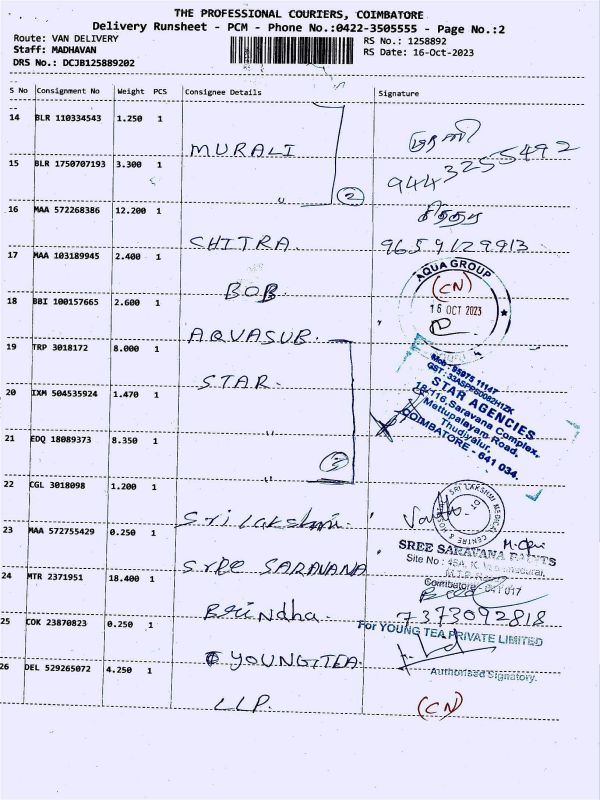 THE PROFESSIONAL COURIERS, COIMBATORE
Delivery Runsheet - PCM - Phone No.:0422-3505555 - Page No.:2
Route: VAN DELIVERY
RS No.: 1258892
Staff: MADHAVAN
RS Date: 16-Oct-2023
DRS No.: DCJB125889202
S No Consignment No Weight PCS Consignee Details Signature
14 BLR 110334543 1.250 1
MURALI
முரளி
15 BLR 1750707193 3.300 1
9443255492
" 2
16 MAA 572268386 12.200 1
சித்ரா
CHITRA 9659129913
17 MAA 103189945 2.400 1
BOB
AQUA GROUP
(CN)
16 OCT 2023
18 BBI 100157665 2.600 1
AQUASUB.
19 TRP 3018172 8.000 1
STAR
Mob: 95975 11147
STAR AGENCIES
18/116, Saravana Complex,
Mettupalayam Road,
Thudiyalur,
COIMBATORE - 641 034.
20 IXM 504535924 1.470 1
"
21 EDQ 18089373 8.350 1
"
22 CGL 3018098 1.200 1
Sri Lakshmi.
SRI LAKSHMI MEDICAL CENTRE &
23 MAA 572755429 0.250 1
SREE SARAVANA
SREE SARAVANA
Site No : 48A, K.
Coimbatore - 641 017
24 MTR 2371951 18.400 1
Brindha. 7373092818
25 COK 23870823 0.250 1
For YOUNG TEA PRIVATE LIMITED
YOUNG TEA.
Authorised Signatory.
26 DEL 529265072 4.250 1
LLP. (CN)